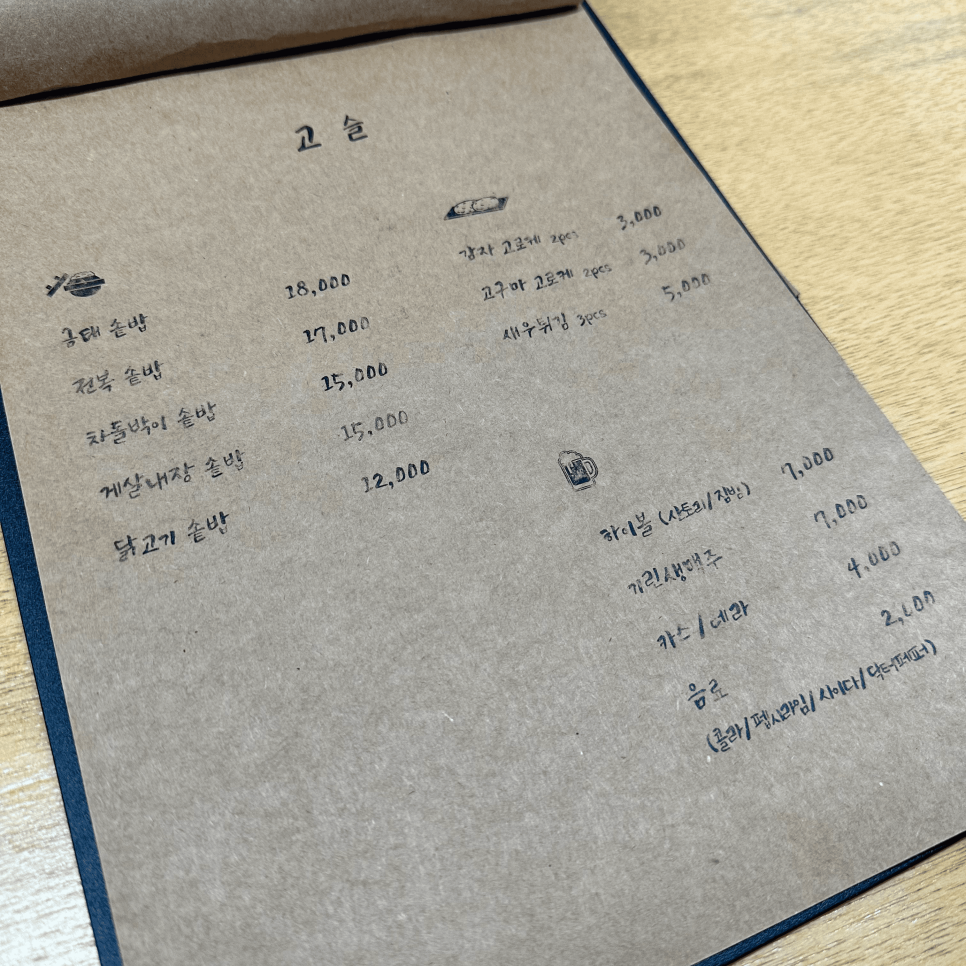 고슬
금태 솥밥 18,000
전복 솥밥 17,000
차돌박이 솥밥 15,000
게살내장 솥밥 15,000
닭고기 솥밥 12,000
감자 고로케 2pcs 3,000
고구마 고로케 2pcs 3,000
새우튀김 3pcs 5,000
하이볼 (산토리/짐빔) 7,000
기린생맥주 7,000
카스/테라 4,000
음료 2,000
(콜라/펩시라임/사이다/닥터페퍼)